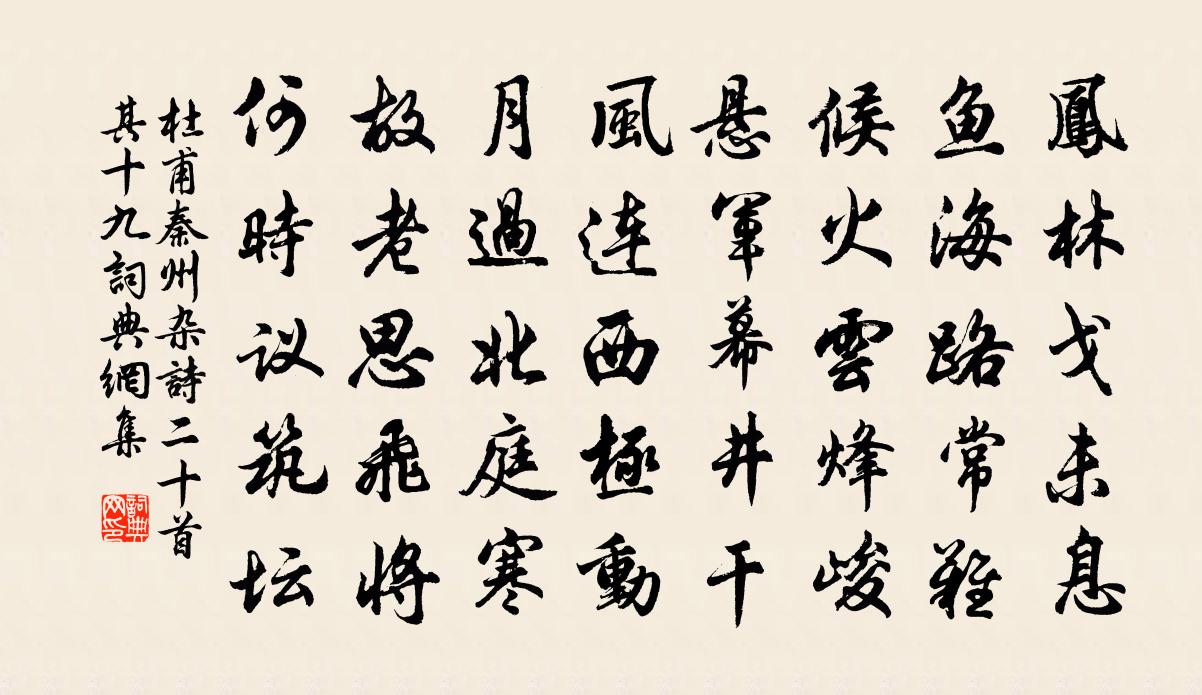 鳳林戈未息
魚海路常難
候火雲烽峻
悬軍幕井干
風連西極動
月過北庭寒
故老思飛將
何時议筑坛
杜甫秦州杂詩二十首
其十九詞典網集
詞典网印